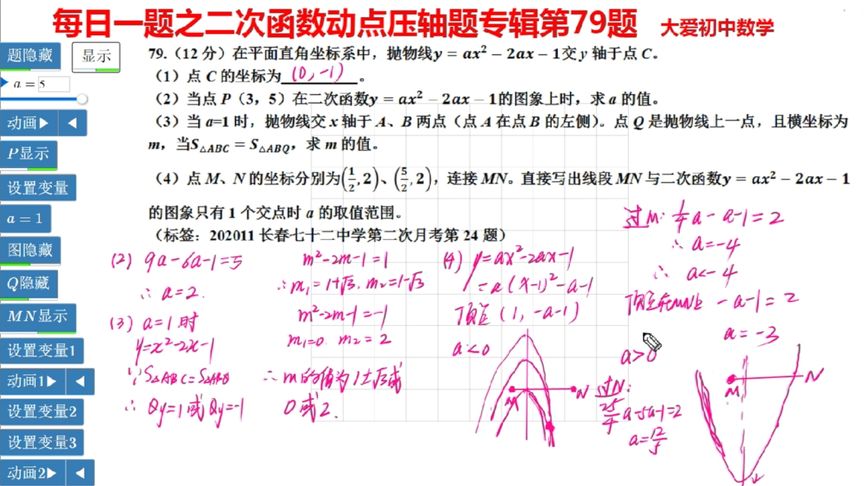 每日一题之二次函数动点压轴题专辑第79题 大爱初中数学
题隐藏 显示
a = 5
动画▶ ◀
P显示
设置变量
a = 1
图隐藏
Q隐藏
MN显示
设置变量1
动画1▶ ◀
设置变量2
设置变量3
动画2▶ ◀
79.（12 分）在平面直角坐标系中，抛物线y = ax² − 2ax − 1交 y 轴于点 C。
（1）点 C 的坐标为 (0,-1) 。
（2）当点 P（3，5）在二次函数y = ax² − 2ax − 1的图象上时，求 a 的值。
（3）当 a=1 时，抛物线交 x 轴于 A、B 两点（点 A 在点 B 的左侧）。点 Q 是抛物线上一点，且横坐标为
m，当S△ABC = S△ABQ，求 m 的值。
（4）点 M、N 的坐标分别为(1/2, 2)、(5/2, 2)，连接 MN。直接写出线段 MN 与二次函数y = ax² − 2ax − 1
的图象只有 1 个交点时 a 的取值范围。
（标签：202011 长春七十二中学第二次月考第 24 题）
(2) 9a-6a-1=5
∴ a=2.
(3) a=1时
y=x²-2x-1
∵S△ABC=S△ABQ
∴ Qy=1或Qy=-1
m²-2m-1=1
∴m₁=1+√3, m₂=1-√3
m²-2m-1=-1
m₁=0 m₂=2
∴m的值为1±√3或
0或2.
(4) y=ax²-2ax-1
=a(x-1)²-a-1
顶点(1,-a-1)
a<0
M N
过M: 1/4a-a-1=2
∴ a=-4
∴ a<-4
顶点在MN上 -a-1=2
a=-3
a>0
过N:
25/4a-5a-1=2
a=12/5
M N